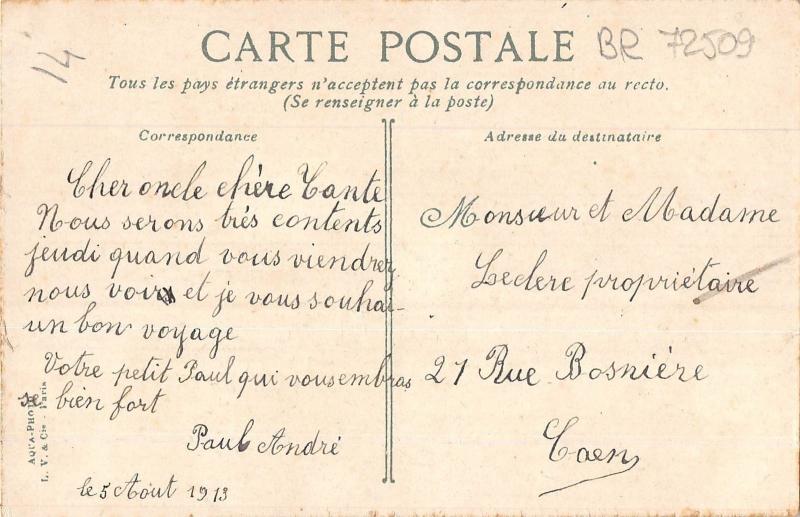 14
CARTE POSTALE
BR 72509
Tous les pays étrangers n'acceptent pas la correspondance au recto.
(Se renseigner à la poste)
Correspondance
Cher oncle chère Tante
Nous serons très contents
jeudi quand vous viendrez
nous voir et je vous souhai-
un bon voyage
Votre petit Paul qui vous embras
se
bien fort
Paul André
le 5 Août 1913
AQUA-PHOTO
L. V. & Cie - Paris
Adresse du destinataire
Monsieur et Madame
Leclere propriétaire
21 Rue Bosnière
Caen